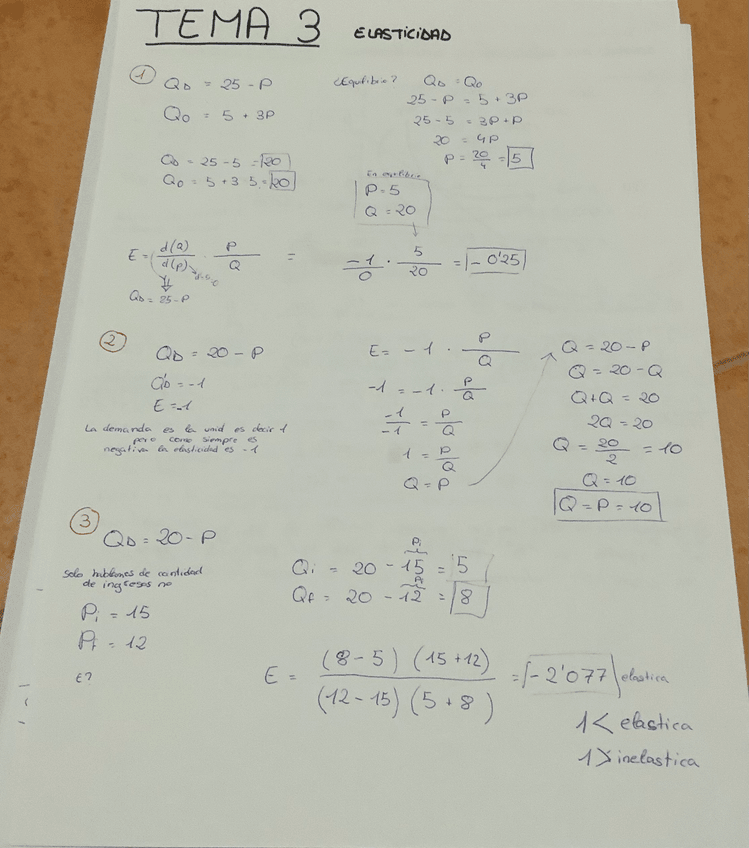 TEMA 3 ELASTICIDAD
1
QD = 25 - P
QO = 5 + 3P
QD = 25 - 5 = 20
QO = 5 + 3·5 = 20
¿Equilibrio? QD = QO
25 - P = 5 + 3P
25 - 5 = 3P + P
20 = 4P
P = 20/4 = 5
En equilibrio
P = 5
Q = 20
E = d(Q)/d(P) · P/Q = -1/0 · 5/20 = -0'25
QD = 25 - P
2
QD = 20 - P
Q'D = -1
E = -1
La demanda es la unid es decir 1
pero como siempre es
negativa la elasticidad es -1
E = -1 · P/Q
-1 = -1 · P/Q
-1/-1 = P/Q
1 = P/Q
Q = P
Q = 20 - P
Q = 20 - Q
Q + Q = 20
2Q = 20
Q = 20/2 = 10
Q = 10
Q = P = 10
3
QD = 20 - P
Solo hablamos de cantidad
de ingresos no
Pi = 15
Pf = 12
E?
Pi
Qi = 20 - 15 = 5
Pf
Qf = 20 - 12 = 8
E = (8-5) (15+12) / (12-15) (5+8) = -2'077 elastica
1 < elastica
1 > inelastica